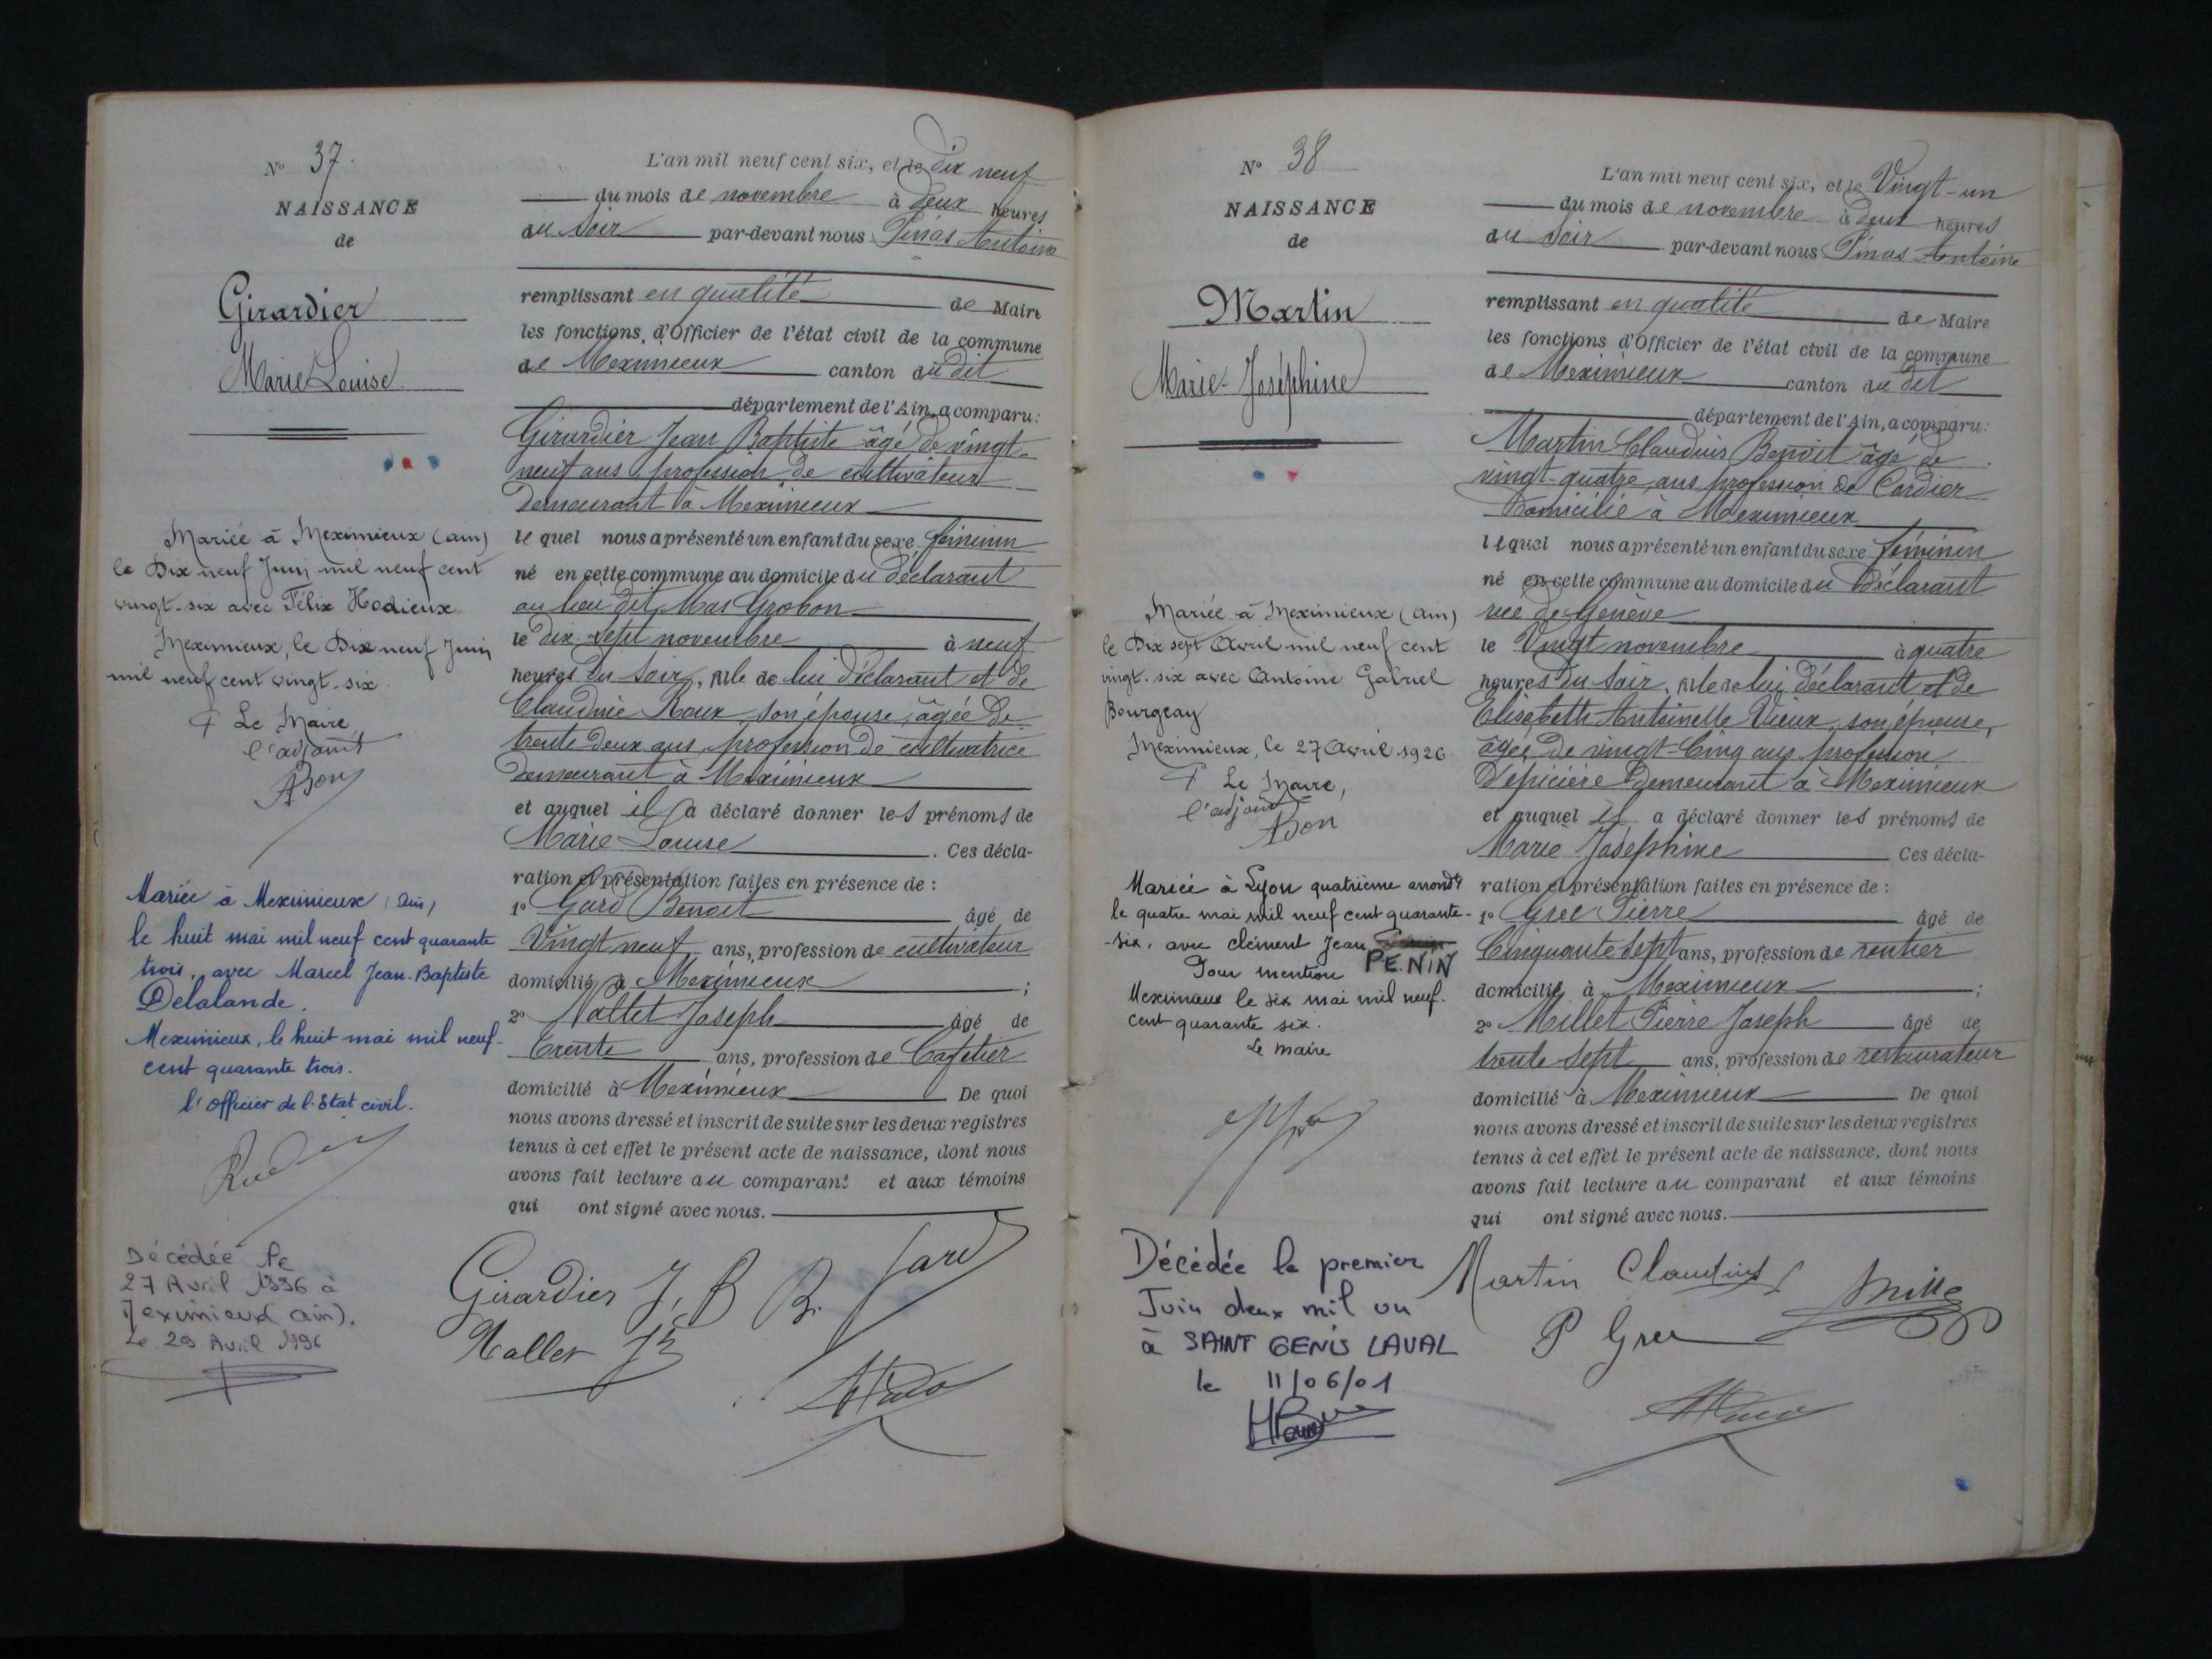 N° 37.
NAISSANCE
de
Girardier
Marie Louise
Mariée à Meximieux (ain)
le Dix neuf Juin mil neuf cent
vingt-six avec Félix Hodieux
Meximieux, le Dix neuf Juin
mil neuf cent vingt-six.
Le Maire
l'adjoint
Bon
Mariée à Meximieux (Ain)
le huit mai mil neuf cent quarante
trois, avec Marcel Jean-Baptiste
Delalande.
Meximieux, le huit mai mil neuf-
cent quarante trois.
l'officier de l'Etat civil.
Décédée le
27 Avril 1996 à
Meximieux (ain).
Le 29 Avril 1996
L'an mil neuf cent six, et le dix neuf
du mois de novembre à deux heures
du soir par-devant nous Pinas Antoine
remplissant en qualité de Maire
les fonctions d'Officier de l'état civil de la commune
de Meximieux canton du dit
département de l'Ain, a comparu:
Girardier Jean Baptiste âgé de vingt-
neuf ans profession de cultivateur
demeurant à Meximieux
le quel nous a présenté un enfant du sexe féminin
né en cette commune au domicile du déclarant
au lieu dit Mas Grobon
le dix-sept novembre à neuf
heures du soir, fille de lui déclarant et de
Claudine Roux, son épouse, âgée de
trente deux ans, profession de cultivatrice
demeurant à Meximieux
et auquel il a déclaré donner les prénoms de
Marie Louise . Ces décla-
ration et présentation faites en présence de :
1° Gard Benoit âgé de
Vingt neuf ans, profession de cultivateur
domicilié à Meximieux ;
2° Nallet Joseph âgé de
trente ans, profession de Cafetier
domicilié à Meximieux De quoi
nous avons dressé et inscrit de suite sur les deux registres
tenus à cet effet le présent acte de naissance, dont nous
avons fait lecture au comparant et aux témoins
qui ont signé avec nous.
Girardier J. B B. Gard
Nallet Jh
N° 38
NAISSANCE
de
Martin
Marie-Joséphine
Mariée à Meximieux (Ain)
le Dix sept Avril mil neuf cent
vingt-six avec Antoine Gabriel
Bourgeay
Meximieux, le 27 Avril 1926
Le Maire,
l'adjoint
Bon
Mariée à Lyon quatrième arrondt
le quatre mai mil neuf cent quarante-
-six, avec clément Jean
PENIN
Pour mention
Meximieux le six mai mil neuf-
cent quarante six.
Le maire
Décédée le premier
Juin deux mil un
à SAINT GENIS LAVAL
le 11/06/01
L'an mil neuf cent six, et le Vingt-un
du mois de novembre à deux heures
du soir par-devant nous Pinas Antoine
remplissant en qualité de Maire
les fonctions d'Officier de l'état civil de la commune
de Meximieux canton du dit
département de l'Ain, a comparu:
Martin Claudius Benoit âgé de
vingt-quatre ans profession de Cordier
Domicilié à Meximieux
lequel nous a présenté un enfant du sexe féminin
né en cette commune au domicile du déclarant
rue de Genève
le Vingt novembre à quatre
heures du soir, fille de lui déclarant et de
Elisabeth Antoinette Vieux, son épouse,
âgée de vingt-Cinq ans profession
d'épicière demeurant à Meximieux
et auquel il a déclaré donner les prénoms de
Marie Joséphine Ces décla-
ration et présentation faites en présence de :
1° Grec Pierre âgé de
Cinquante sept ans, profession de rentier
domicilié à Meximieux ;
2° Millet Pierre Joseph âgé de
trente sept ans, profession de restaurateur
domicilié à Meximieux De quoi
nous avons dressé et inscrit de suite sur les deux registres
tenus à cet effet le présent acte de naissance, dont nous
avons fait lecture au comparant et aux témoins
qui ont signé avec nous.
Martin Claudius Millet
P Grec